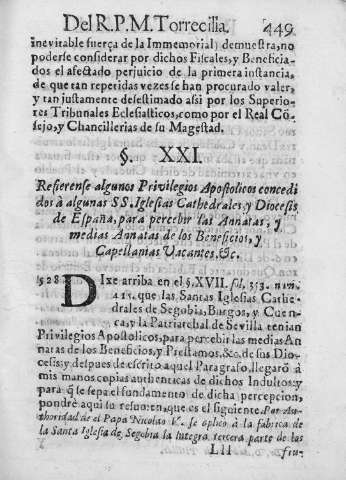 Del R.P.M. Torrecilla. 449
inevitable fuerça de la Immemorial; demuestra, no
poderse considerar por dichos Fiscales, y Beneficia-
dos el afectado perjuicio de la primera instancia,
de que tan repetidas vezes se han procurado valer,
y tan justamente desestimado assi por los Superio-
res Tribunales Eclesiasticos, como por el Real Cõ-
sejo, y Chancillerias de su Magestad.
§. XXI.
Refierense algunos Privilegios Apostolicos concedi
dos à algunas SS. Iglesias Cathedrales, y Diocesis
de España, para percebir las Annatas, y
medias Annatas de los Beneficios, y
Capellanias Vacantes, &c.
528 DIxe arriba en el §. XVII. fol. 353. num.
que las Santas Iglesias Cathe-
drales de Segobia, Burgos, y Cuen-
ca, y la Patriarchal de Sevilla tenian
Privilegios Apostolicos, para percebir las medias An-
natas de los Beneficios, y Prestamos, &c. de sus Dio-
cesis; y despues de escrito aquel Paragrafo, llegarõ à
mis manos copias authenticas de dichos Indultos; y
para q̃ se sepa el fundamento de dicha percepcion,
pondrè aqui su resumen, que es el siguiente. Por Au-
thoridad de el Papa Nicolao V. se aplicò à la fabrica de
la Santa Iglesia de Segobia la integra tercera parte de los
Lll fru-